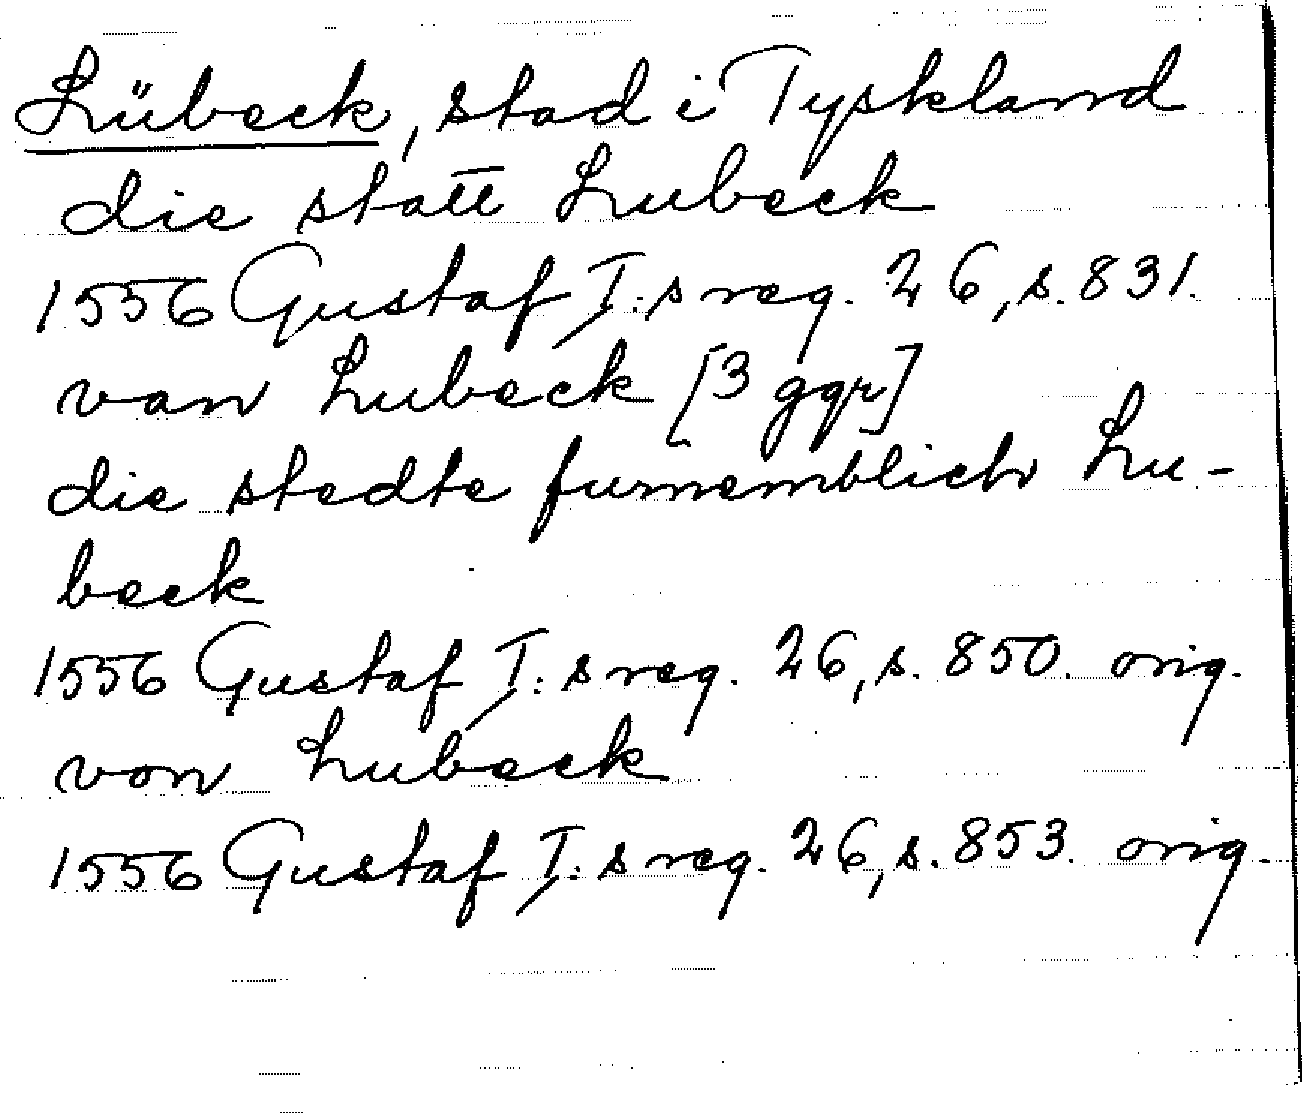 Lübeck, stad i Tyskland
die statt Lubeck
1556 Gustaf I:s reg. 26, s. 831.
van Lubeck [3 ggr]
die stedte furnemblich Lu-
beck
1556 Gustaf I:s reg. 26, s. 850. orig.
von Lubeck
1556 Gustaf I:s reg. 26, s. 853. orig.